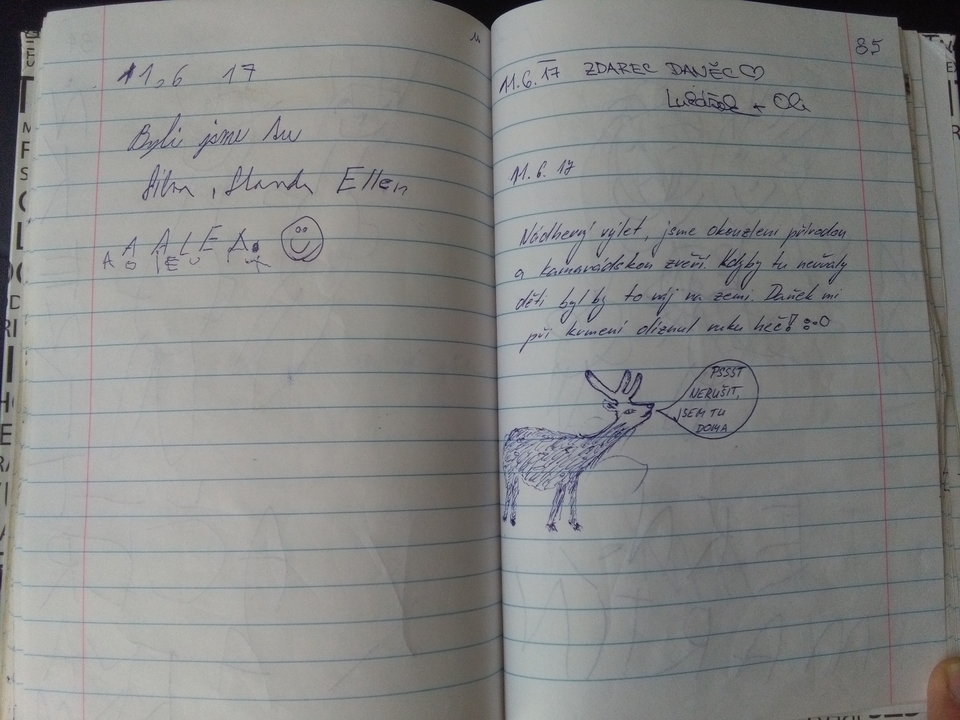 11,6 17
Byli jsme tu
Standa Ellen
A ALEA
85
11.6.17 ZDAREC DANĚC♡
+ Oli
11.6.17
Nádherný výlet, jsme okouzleni přírodou
a kamarádskou zvěří. Kdyby tu neřvaly
děti byl by to ráj na zemi. Daněk mi
při krmení olíznul ruku heč!
PSSST
NERUŠIT,
JSEM TU
DOMA